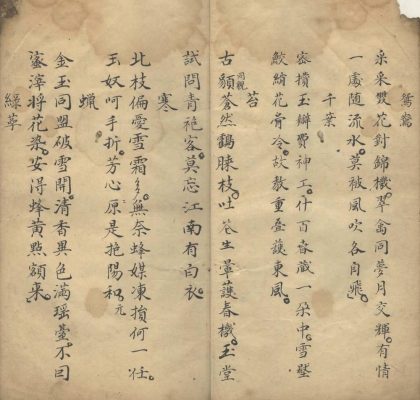 鴛鴦
朵朵雙花針錦機翠禽同夢月交輝。有情
一處隨流水。莫被風吹各自飛。
千葉
密攢玉瓣費神工。什百番藏一朵中。雪壓
鮫綃花骨冷。故教重疊護東風。
苔
古顏蒼然鶴膝枝。吐蒼生暈護春機。玉堂
試問青袍客。莫忘江南有白衣。
寒
北枝偏愛雪霜多。無奈蜂媒凍損何。一任
玉奴呵手折。芳心原是抱陽和。元
蠟
金玉同盟破雪開。清香異色滿瑤臺。不因
蜜滓將花染。安得蜂黃點額來。
綠萼